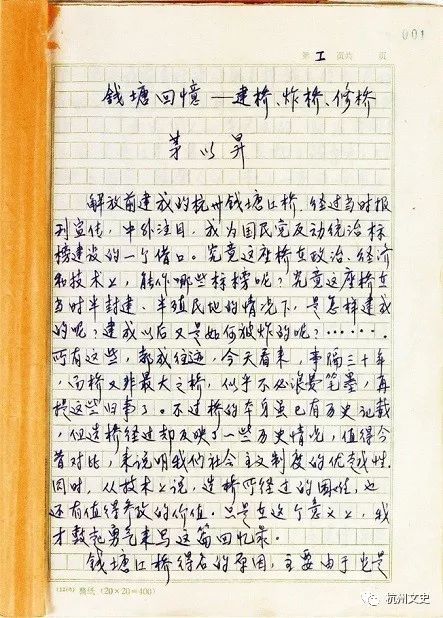 001
第 I 页共 页
钱塘回忆——建桥、炸桥、修桥
茅以昇
解放前建成的杭州钱塘江桥，经过当时报
刊宣传，中外注目，成为国民党反动统治标
榜建设的一个借口。究竟这座桥在政治、经济
和技术上，能作哪些标榜呢？究竟这座桥在
当时半封建、半殖民地的情况下，是怎样建成
的呢？建成以后又是如何被炸的呢？……
所有这些，都成往迹，今天看来，事隔三十年，
而桥又非最大之桥，似乎不必浪费笔墨，再
提这些旧事了。不过桥的本身虽已有历史记载，
但造桥经过却反映了一些历史情况，值得今
昔对比，来说明我们社会主义制度的优越性。
同时，从技术上说，造桥所经过的困难，也
还有值得参考的价值。只是在这个意义上，我
才鼓起勇气来写这篇回忆录。
钱塘江桥得名的原因，主要由于它是
稿纸 (20×20=400)
杭州文史